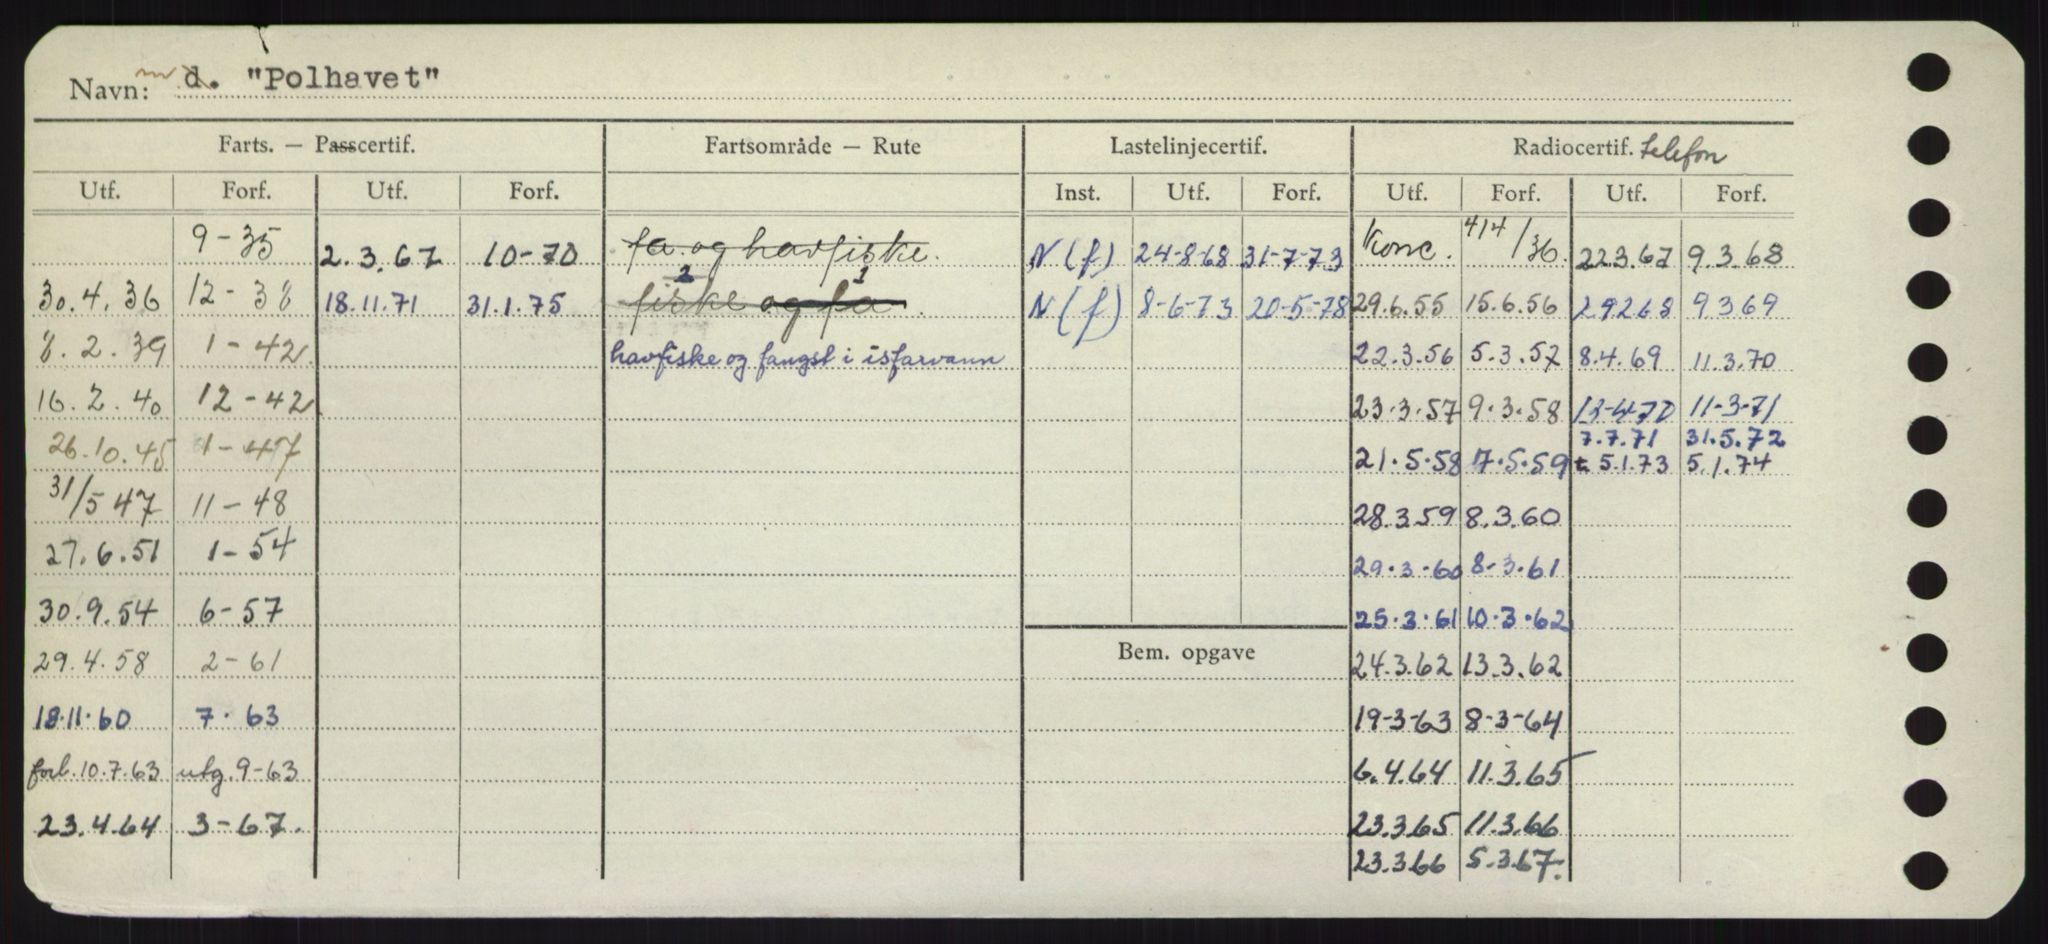 Navn: m d. "Polhavet"
Farts. — Passcertif. Fartsområde — Rute Lastelinjecertif. Radiocertif. telefon
Utf. Forf. Utf. Forf. Inst. Utf. Forf. Utf. Forf. Utf. Forf.
9-35 2.3.67 10-70 fa. og havfiske. N (f) 24-8-68 31-7-73 Konc. 4/4/36. 223.67 9.3.68
30.4.36 12-38 18.11.71 31.1.75 fiske 2 og fa 1. N (f) 8-6-73 20-5-78 29.6.55 15.6.56 29268 9369
8.2.39 1-42. havfiske og fangst i isfarvann 22.3.56 5.3.57 8.4.69 11.3.70
16.2.40 12-42. 23.3.57 9.3.58 13-4-70 11-3-71
7.7.71 31.5.72
26.10.45 1-47 21.5.58 7.5.59 t 5.1.73 5.1.74
31/5 47 11-48 28.359 8.3.60
27.6.51 1-54 29.3.60 8.3.61
30.9.54 6-57 25.3.61 10.3.62
29.4.58 2-61 Bem. opgave 24.3.62 13.3.62
18.11.60 7.63 19-3-63 8-3-64
forl. 10.7.63 utg. 9-63 6.4.64 11.3.65
23.4.64 3-67. 23.365 11.3.66
23.366 5.367.